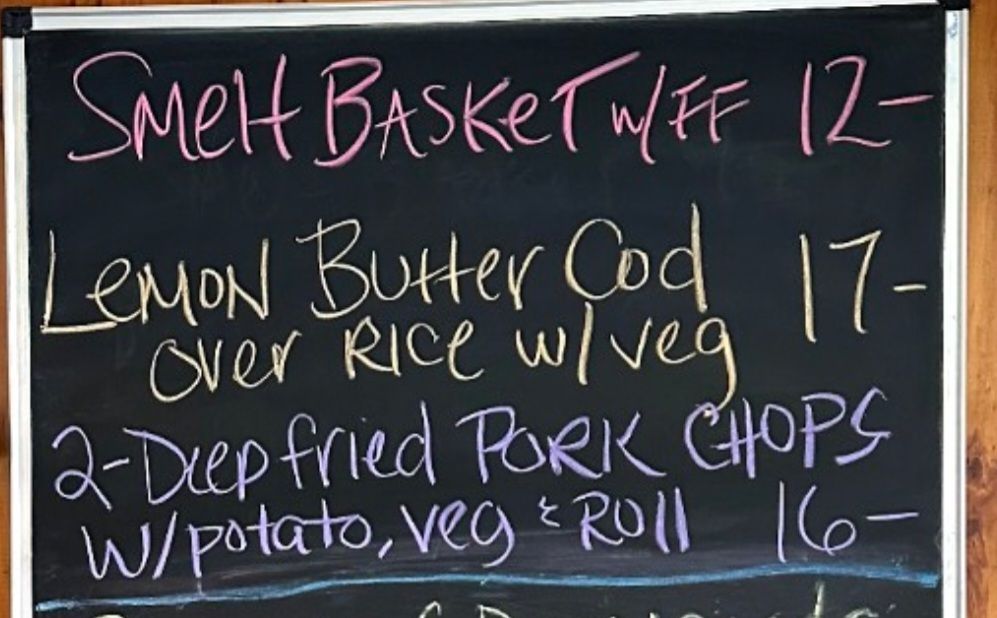 SMelt BASKeT w/FF 12-
LeMON Butter Cod 17-
over RICe w/veg
2-Deep fried PORK CHOPS
W/potato, veg & Roll 16-